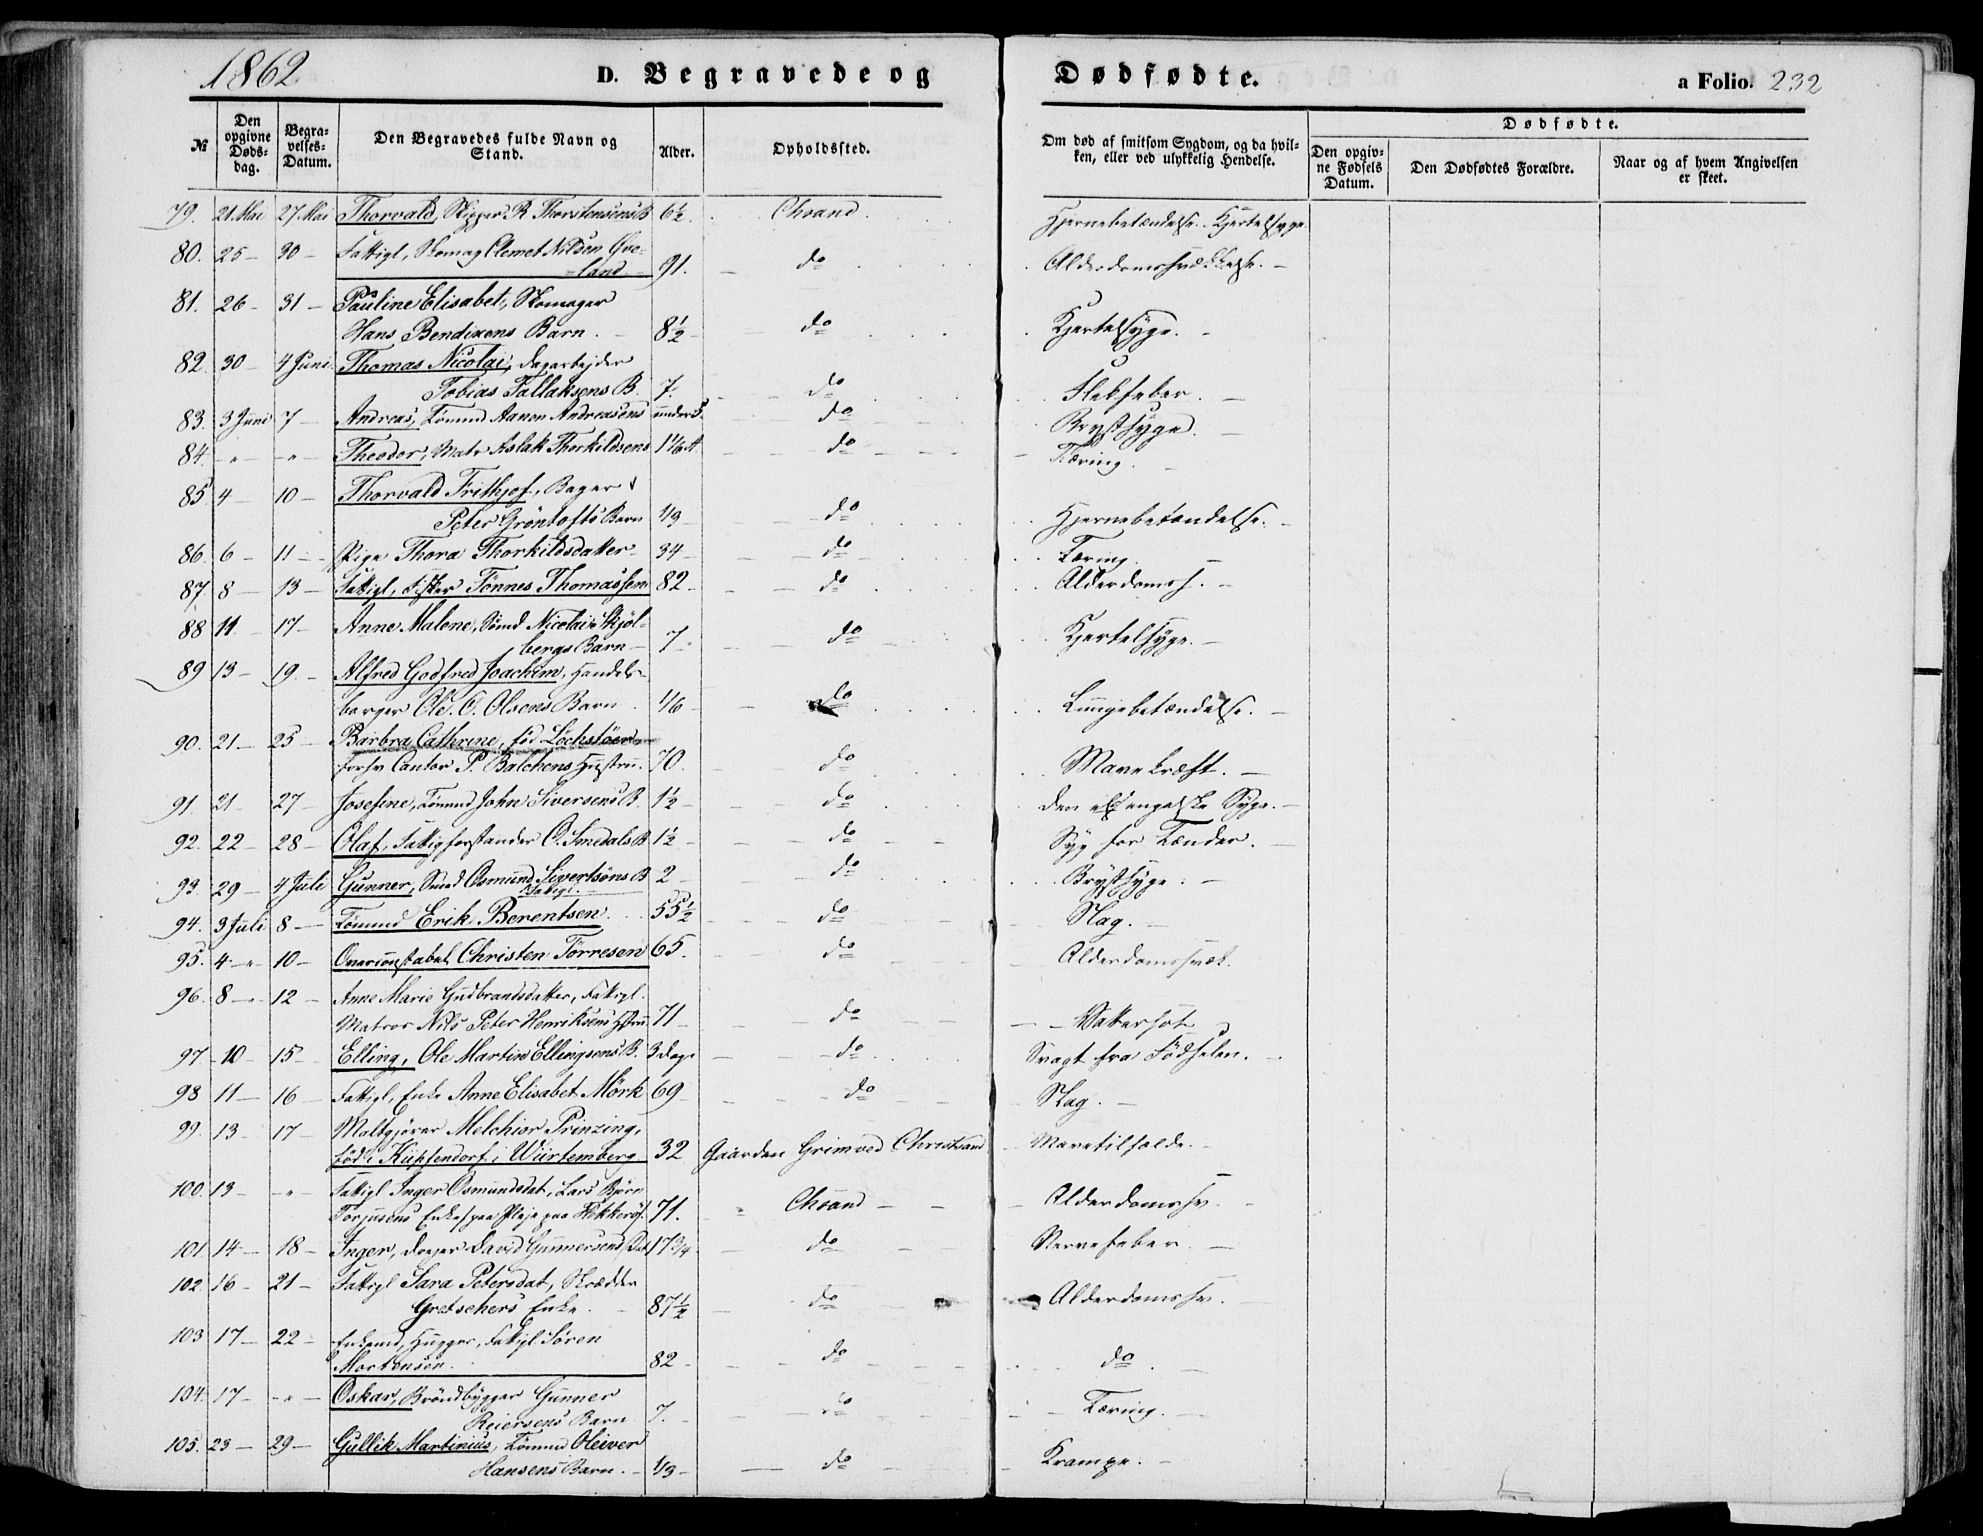 1862
D. Begravede og Dødfødte.
a Folio. 232
№ | Den opgivne Døds-dag. | Begra-velses-Datum. | Den Begravedes fulde Navn og Stand. | Alder. | Opholdssted. | Om død af smitsom Sygdom, og da hvil-ken, eller ved ulykkelig Hendelse. | Dødfødte.
Den opgiv-ne Fødsels Datum. | Den Dødfødtes Forældre. | Naar og af hvem Angivelsen er skeet.
79. 21. Mai 27. Mai Thorvald, Skipper R. Thorstensens B 6½ Chsand. Hjernebetændelse. Kjertelsyge.
80. 25 – 30 – Fattigl, Skomag Clemet Nilsen Øve-
land – 91. – do Alderdomssvækkelse. –
81. 26 – 31 – Pauline Elisabet, Skomager
Hans Bendixens Barn. – 8½ – do Kjertelsyge. –
82. 30 – 4 Juni. Thomas Nicolai, Dagarbejder
Tobias Tallaksens B. 7. – do Flekfeber. –
83. 3 Juni 7 – Andreas, Tømmd Aanon Andreasens under 5. do Brystsyge. –
84. " – " – Theodor, Matr Aslak Thorkildsens 1 1/6 A do Tæring. –
85 4 – 10 – Thorvald Frithjof, Bager
Peter Gröntofts Barn 1/3 – do Hjernebetændelse. –
86. 6 – 11 – Pige Thora Thorkildsdatter – 34 – do Tæring. –
87. 8 – 13 – Fattigl, Fisker Tönnes Thomassen 82 – do Alderdomss. –
88 11. – 17 – Anne Malene, Sömd Nicolai Skjöl-
bergs Barn – 7 – do Kjertelsyge. –
89 13 – 19. – Alfred Godfred Joachim, Handels-
borger Ole. O. Olsens Barn. 1/6 – do Lungebetændelse. –
90. 21 – 25 – Barbra Cathrine, föd Lochstöer,
forhv Cantor P. Balchens Hustru. 70. do Mavekræft. –
91. 21 – 27 – Josefine, Tömmd John Siversens B. 1½ – do den engelske Syge. –
92. 22 – 28 – Olaf, Fattigforstander O. Smedals B. 1½ – do Syg for Tænder. –
93. 29 – 4 Juli Gunner, Smed Osmund Sivertsöns B 2 – do Brystsyge. –
94. 3 Juli 8 – Tömmd Erik Berentsen. Fattigl. – 55½ – do Slag. –
95. 4 – " 10 – Overconstabel Christen Törresen 65. – do Alderdomssvæk.
96. 8 – 12 – Anne Marie Gudbrandsdatter, Fattigl.
Matros Nils Peter Henriksens Hstru 71 – do Vattersot
97. 10 – 15 – Elling, Ole Martin Ellingsens B. 3 Dage – do Svagt fra Födselen. –
98 11 – 16 – Fattigl, Enke Anne Elisabet Mörk 69 – do Slag. –
99. 13 – 17 – Maltgjörer Melchior Prinzing,
föd i Küpfendorf i Würtemberg 32 Gaarden Grim ved Christsand – Mavetilfælde. –
100. 13 – " – Fattigl Inger Osmundsdat, Lars Björn
Torjusens Enke, paa Pleje paa 71. Chsand – Alderdomssv. –
101. 14 – 18 – Inger, David Gunnersens Dat 17 3/4 – do Nervefeber. –
102. 16 – 21 – Fattigl Sara Petersdat, Skrædder
Gretschers Enke. – 87½ – do Alderdomssv. –
103. 17 – 22 – Enkemd, Fattigl Sören
Mortensen. 82 – do do. –
104. 17 – " – Oskar, Bröndbygger Gunner
Reiersens Barn 7. – do Tæring. –
105. 23 – 29 – Gullik Martinius, Tömmd Oleiver
Hansens Barn. – 1/3 – do Krampe. –